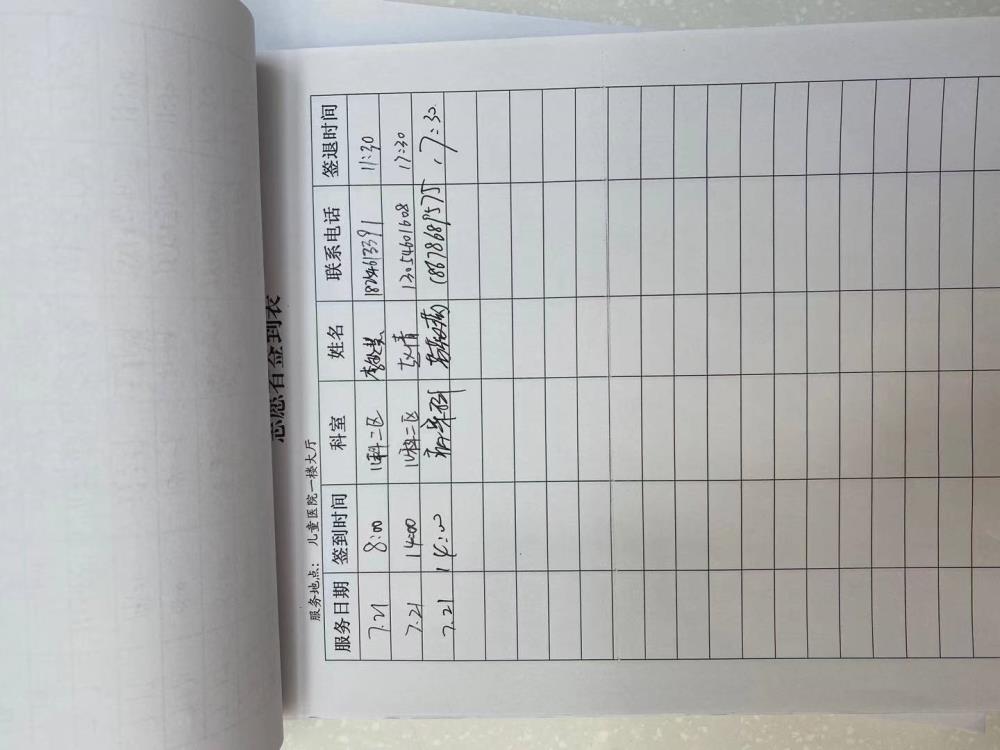 志愿者签到表
服务地点：儿童医院一楼大厅
服务日期 签到时间 科室 姓名 联系电话 签退时间
7.21 8:00 儿科二区 11:30
7.21 14:00 儿科二区 赵倩 13054601608 17:30
7.21 14:00 18678689575 17:30